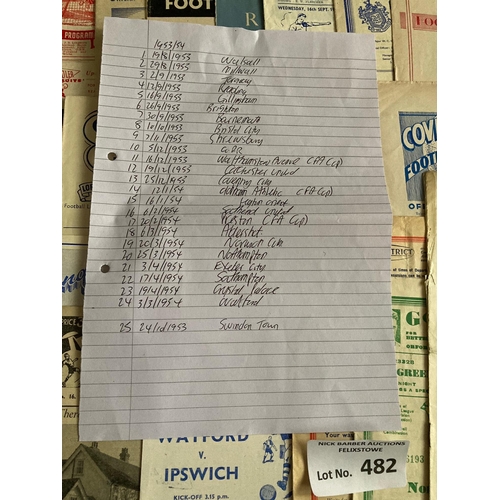 PROGRAM
FOOT
R
WEDNESDAY, 16th SEPT.
FOO
1953/54
1 19/8/1953 Walsall
2 29/8/1953 Millwall
3 2/9/1953 Torquay
4 12/9/1953 Reading
5 16/9/1953 Gillingham
6 26/9/1953 Brighton
7 30/9/1953 Bournemouth
8 10/10/1953 Bristol City
9 7/11/1953 Shrewsbury
10 5/12/1953 Q.P.R
11 16/12/1953 Walthamstow Avenue (FA Cup)
12 19/12/1953 Colchester United
13 25/12/1953 Coventry City
14 9/1/54 Oldham Athletic (FA Cup)
15 16/1/54 Leyton Orient
16 6/2/1954 Southend United
17 Preston (FA Cup)
18 6/3/1954 Aldershot
19 20/3/1954 Norwich City
20 25/3/1954 Northampton
21 3/4/1954 Exeter City
22 17/4/1954 Southampton
23 19/4/1954 Crystal Palace
24 3/3/1954 Watford
25 24/10/1953 Swindon Town
COV
FOOTB
OFFI
WATFORD
V.
IPSWICH
KICK-OFF 3.15 p.m.
NICK BARBER AUCTIONS
FELIXSTOWE
Lot No. 482